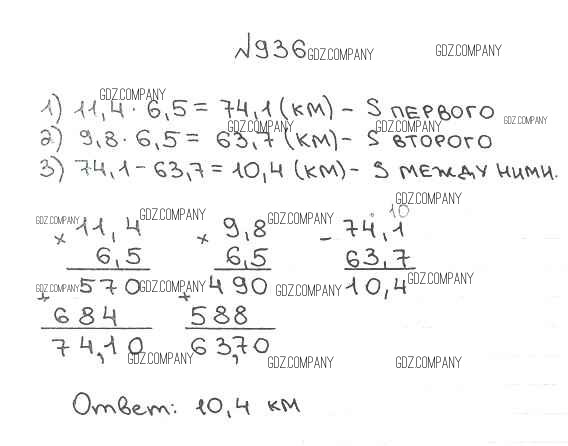 №936 GDZ.COMPANY GDZ.COMPANY
GDZ.COMPANY
1) 11,4 · 6,5 = 74,1 (км) – S первого
GDZ.COMPANY GDZ.COMPANY GDZ.COMPANY
2) 9,8 · 6,5 = 63,7 (км) – S второго
3) 74,1 – 63,7 = 10,4 (км) – S между ними.
GDZ.COMPANY
10
GDZ.COMPANY × 11,4 GDZ.COMPANY × 9,8 GDZ.COMPANY – 74,1
6,5 6,5 63,7
GDZ.COMPANY + 570 GDZ.COMPANY + 490 GDZ.COMPANY 10,4 GDZ.COMPANY
684 588
74,10 GDZ.COMPANY 63,70 GDZ.COMPANY GDZ.COMPANY
Ответ: 10,4 км